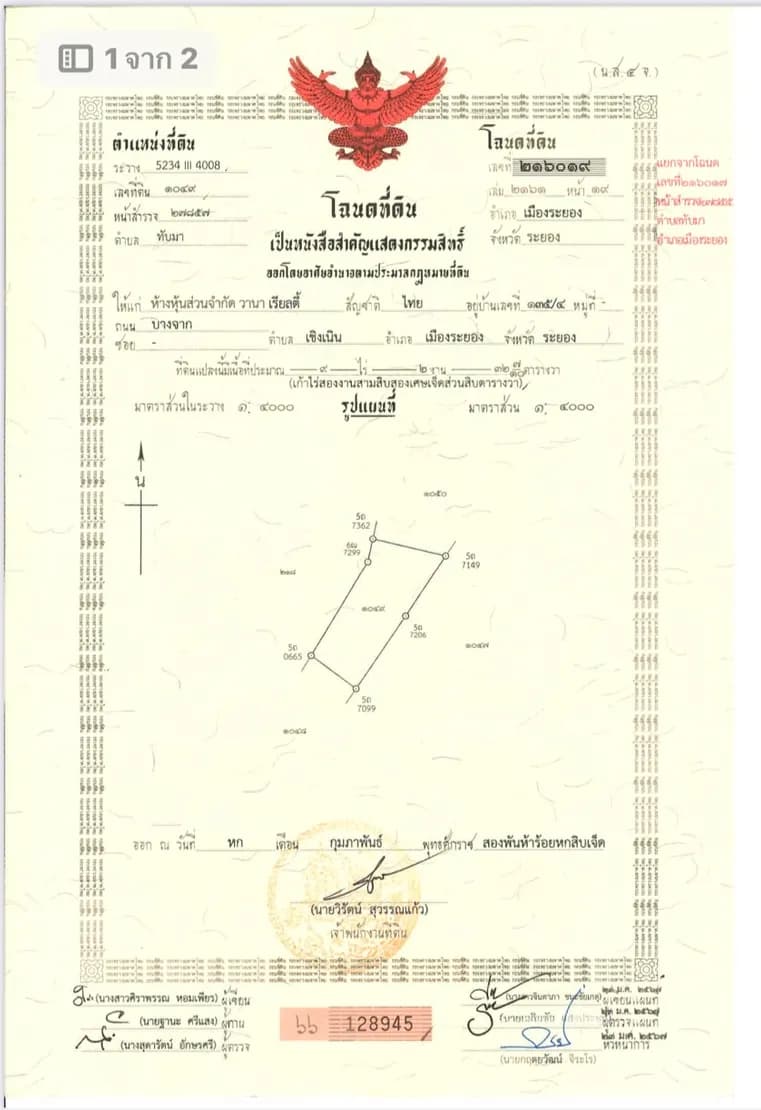 1 จาก 2
(น.ส.๔ จ.)
ตำแหน่งที่ดิน
ระวาง 5234 III 4008
เลขที่ดิน ๑๐๔๙
หน้าสำรวจ ๒๗๘๕๗
ตำบล ทับมา
โฉนดที่ดิน
เลขที่ ๒๑๖๐๑๙
เล่ม ๒๑๖๑ หน้า ๑๙
อำเภอ เมืองระยอง
จังหวัด ระยอง
แยกจากโฉนด
เลขที่๒๑๖๐๑๗
ตำบลทับมา
อำเภอเมืองระยอง
โฉนดที่ดิน
เป็นหนังสือสำคัญแสดงกรรมสิทธิ์
ออกโดยอาศัยอำนาจตามประมวลกฎหมายที่ดิน
ให้แก่ ห้างหุ้นส่วนจำกัด วานา เรียลตี้ สัญชาติ ไทย อยู่บ้านเลขที่ ๑๓๕/๔ หมู่ที่ -
ถนน บางจาก
ซอย - ตำบล เชิงเนิน อำเภอ เมืองระยอง จังหวัด ระยอง
ที่ดินแปลงนี้มีเนื้อที่ประมาณ ๙ ไร่ ๒ งาน ๓๒ ๗/๑๐ ตารางวา
(เก้าไร่สองงานสามสิบสองเศษเจ็ดส่วนสิบตารางวา)
มาตราส่วนในระวาง ๑: ๔๐๐๐ รูปแผนที่ มาตราส่วน ๑: ๔๐๐๐
น
๑๐๕๐
5ถ
7362
6ฌ
7299
5ถ
7149
๒๑๘
๑๐๔๙
5ถ
7206
๑๐๔๗
5ถ
0665
5ถ
7099
๑๐๔๘
ออก ณ วันที่ หก เดือน กุมภาพันธ์ พุทธศักราช สองพันห้าร้อยหกสิบเจ็ด
(นายวิรัตน์ สุวรรณแก้ว)
เจ้าพนักงานที่ดิน
(นางสาวศิราพรรณ หอมเพียร) ผู้เขียน
(นายฐานะ ศรีแสง) ผู้ทาน
(นางสุดารัตน์ อักษรศรี) ผู้ตรวจ
๖๖ 128945
ผู้เขียนแผนที่
ผู้ตรวจแผนที่
๒๓ ม.ค. ๒๕๖๗
หัวหน้าการ